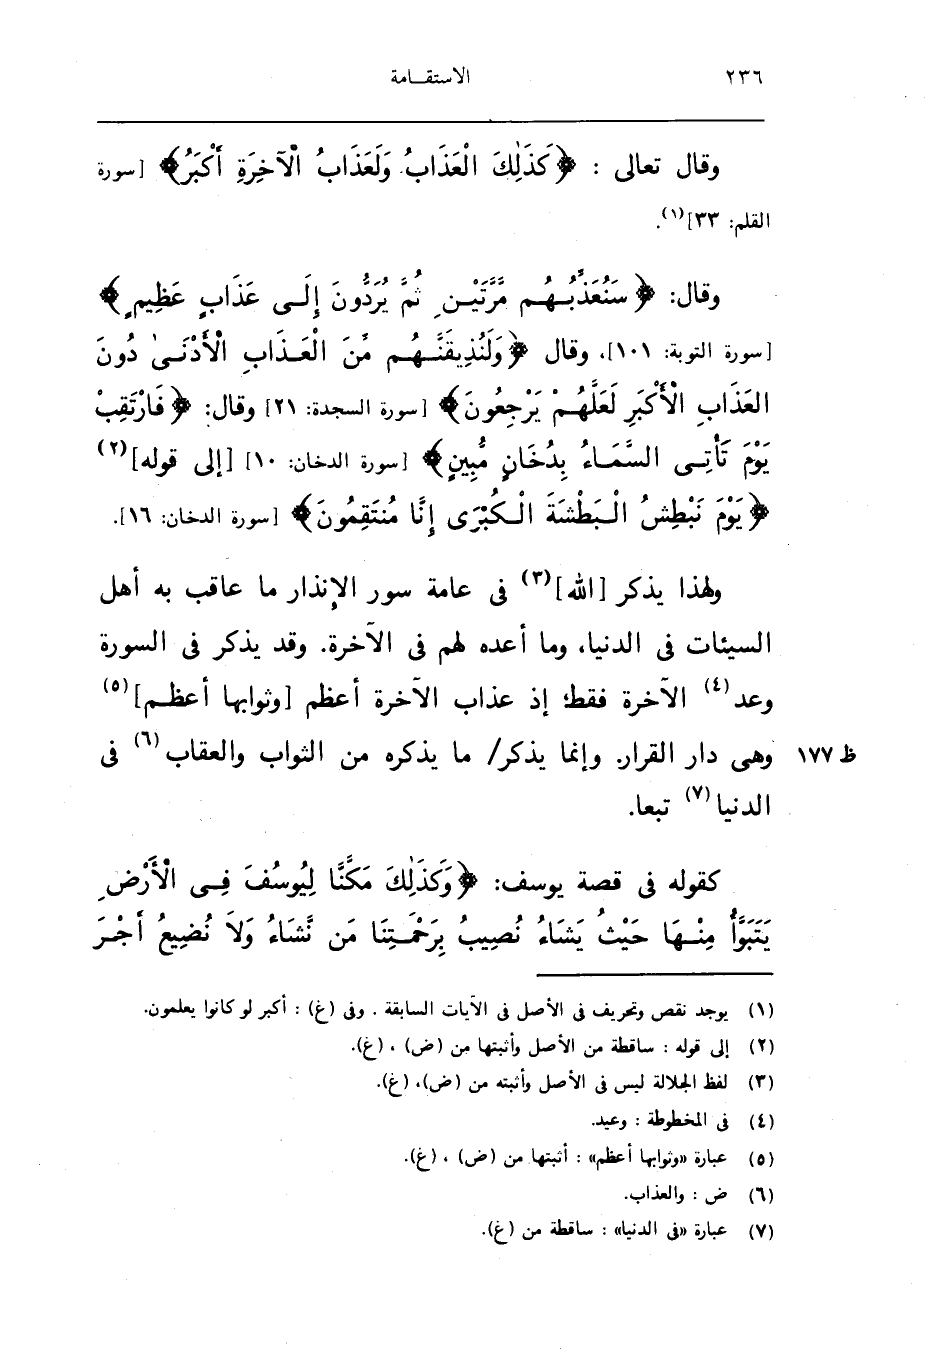 ٢٣٦ الاستقامة
وقال تعالى : ﴿كَذَلِكَ الْعَذَابُ وَلَعَذَابُ الْآخِرَةِ أَكْبَرُ﴾ [سورة
القلم: ٣٣](١).
وقال: ﴿سَنُعَذِّبُهُم مَّرَّتَيْنِ ثُمَّ يُرَدُّونَ إِلَى عَذَابٍ عَظِيمٍ﴾
[سورة التوبة: ١٠١]، وقال ﴿وَلَنُذِيقَنَّهُم مِّنَ الْعَذَابِ الْأَدْنَىٰ دُونَ
الْعَذَابِ الْأَكْبَرِ لَعَلَّهُمْ يَرْجِعُونَ﴾ [سورة السجدة: ٢١] وقال: ﴿فَارْتَقِبْ
يَوْمَ تَأْتِى السَّمَاءُ بِدُخَانٍ مُّبِينٍ﴾ [سورة الدخان: ١٠] [إلى قوله](٢)
﴿يَوْمَ نَبْطِشُ الْبَطْشَةَ الْكُبْرَى إِنَّا مُنتَقِمُونَ﴾ [سورة الدخان: ١٦].
ولهذا يذكر [الله](٣) فى عامة سور الإنذار ما عاقب به أهل
السيئات فى الدنيا، وما أعده لهم فى الآخرة. وقد يذكر فى السورة
وعد(٤) الآخرة فقط؛ إذ عذاب الآخرة أعظم [وثوابها أعظم](٥)
ظ ١٧٧ وهى دار القرار. وإنما يذكر/ ما يذكره من الثواب والعقاب(٦) فى
الدنيا(٧) تبعا.
كقوله فى قصة يوسف: ﴿وَكَذَلِكَ مَكَّنَّا لِيُوسُفَ فِى الْأَرْضِ
يَتَبَوَّأُ مِنْهَا حَيْثُ يَشَاءُ نُصِيبُ بِرَحْمَتِنَا مَن نَّشَاءُ وَلَا نُضِيعُ أَجْرَ
(١) يوجد نقص وتحريف فى الأصل فى الآيات السابقة . وفى (غ) : أكبر لو كانوا يعلمون.
(٢) إلى قوله : ساقطة من الأصل وأثبتها من (ض) ، (غ).
(٣) لفظ الجلالة ليس فى الأصل وأثبته من (ض)، (غ).
(٤) فى المخطوطة : وعيد.
(٥) عبارة «وثوابها أعظم» : أثبتها من (ض) ، (غ).
(٦) ض : والعذاب.
(٧) عبارة «فى الدنيا» : ساقطة من (غ).